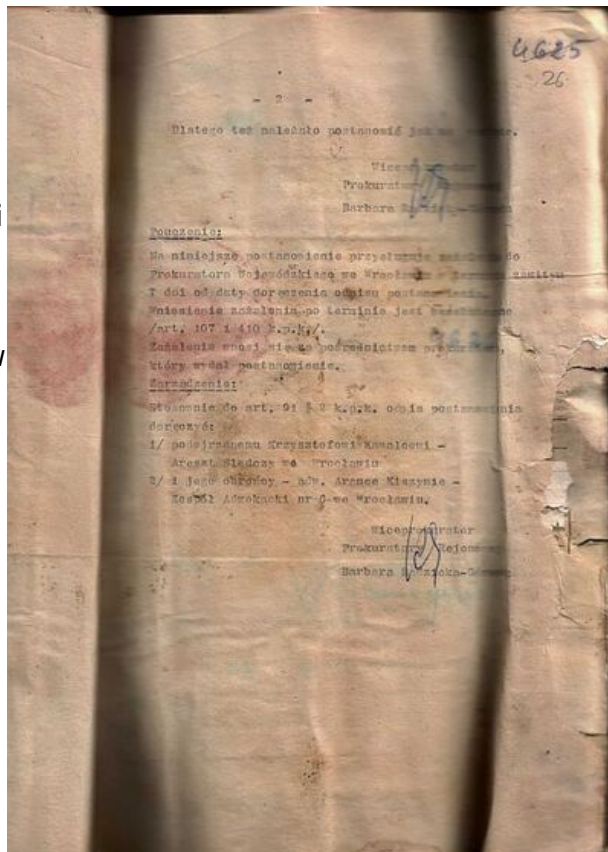 4625
26
- 2 -
Dlatego też należało postanowić jak na
Wiceprokurator
Prokuratury
Barbara
Pouczenie:
Na niniejsze postanowienie przysługuje zażalenie do
Prokuratora Wojewódzkiego we Wrocławiu zawitym
7 dni od daty doręczenia odpisu
Wniesienie zażalenia po terminie jest
/art. 107 i 410 k.p.k./.
Zażalenie wnosi się za pośrednictwem
który wydał postanowienie.
Zarządzenie:
Stosownie do art. 91 § 2 k.p.k. odpis postanowienia
doręczyć:
1/ podejrzanemu Krzysztofowi Kawalcowi -
Areszt Śledczy we Wrocławiu
2/ i jego obrońcy - adw. Kiszynie -
Zespół Adwokacki nr we Wrocławiu.
Wiceprokurator
Prokuratury Rejonowej
Barbara
i
w